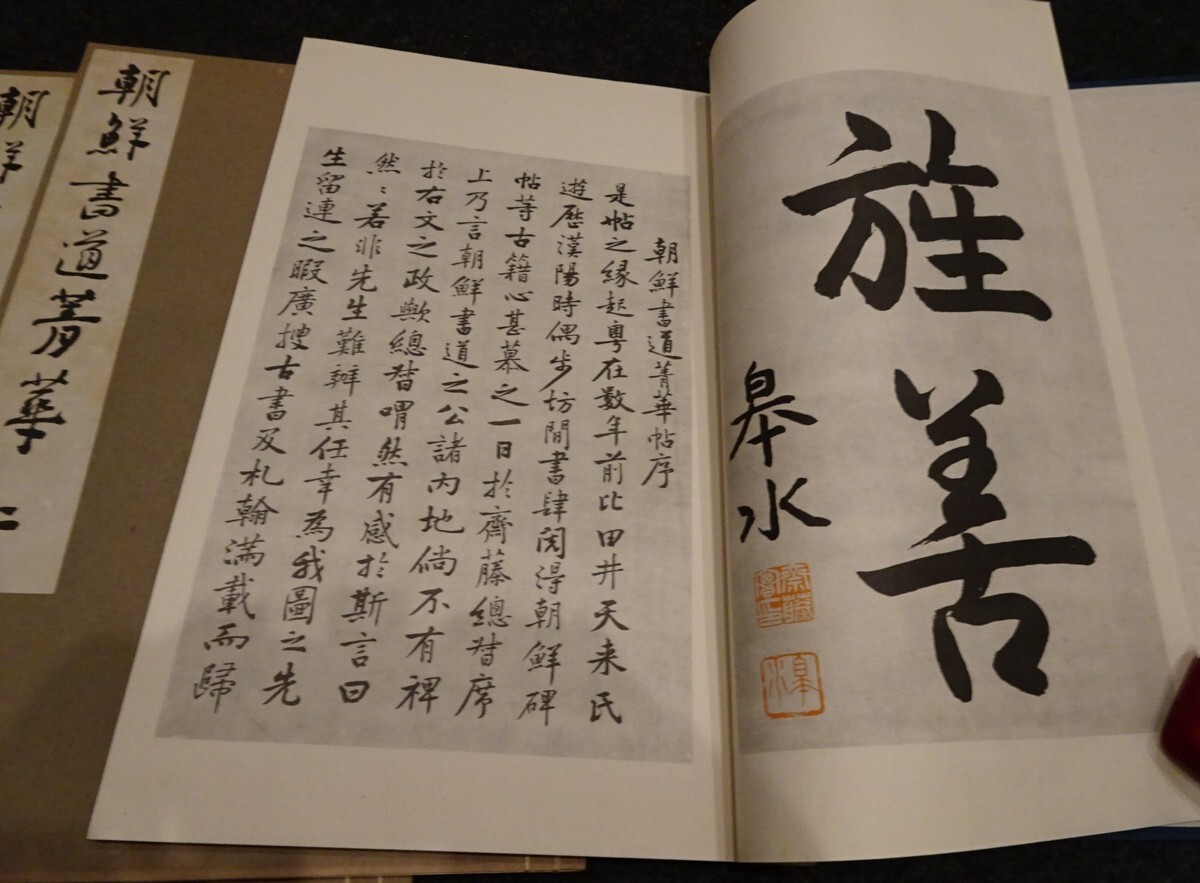 旌善
皐水
齋藤實印
皐水
朝鮮書道菁華帖序
是帖之縁起粤在数年前比田井天来氏
遊歴漢陽時偶步坊間書肆閲得朝鮮碑
帖等古籍心甚慕之一日於齊藤總督席
上乃言朝鮮書道之公諸内地倘不有裨
於右文之政歟總督喟然有感於斯言曰
然〻若非先生難辦其任幸為我圖之先
生留連之暇廣搜古書及札翰満載而歸
朝鮮書道菁華
朝鮮
二